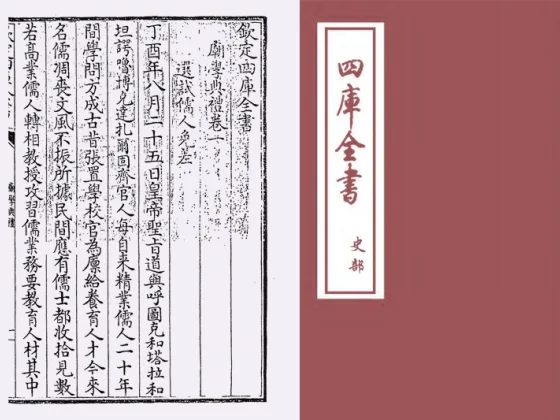 欽定四庫全書
廟學典禮卷一
選試儒人免差
丁酉年八月二十五日皇帝聖旨道與呼圖克和塔拉和
坦諤嚕博克達扎爾固齊官人每自来精業儒人二十年
間學問方成古昔張置學校官為廪給養育人才今来
名儒凋喪文風不振所據民間應有儒士都收拾見數
若高業儒人轉相教授攻習儒業務要教育人材其中
廟學典禮
四庫全書
史部